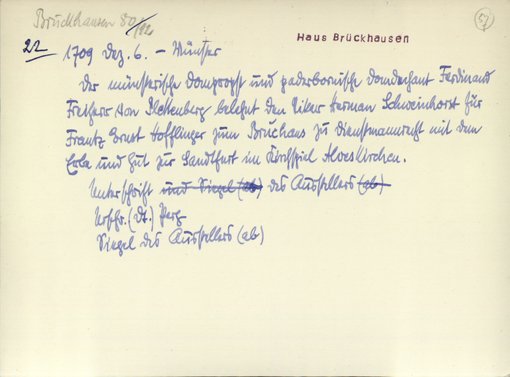 Brückhausen 80/82
57
Haus Brückhausen
22 1709 Dez. 6. – Münster
Der münsterische Dompropst und paderbornische Domdechant Ferdinand
Freiherr von Plettenberg belehnt den Vikar Herman Schweinhorst für
Frantz Ernst Höfflinger zum Bruchaus zu Dienstmannrecht mit dem
Erbe und Gut zur Sandtfurt im Kirchspiel Alverskirchen.
Unterschrift und Siegel (ab) des Ausstellers (ab)
Urschr. (Dt.) Perg.
Siegel des Ausstellers (ab)